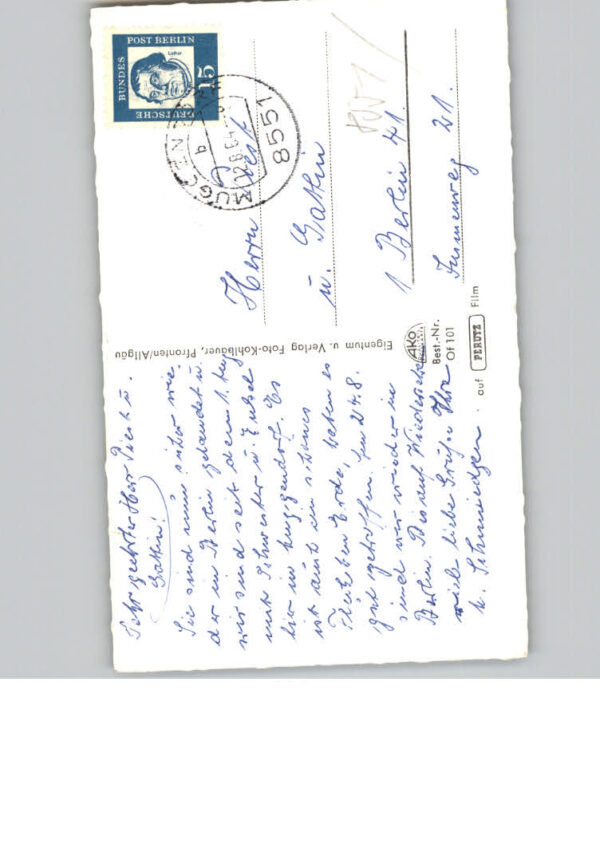 Sehr geehrter Herr Piesk u.
Gattin!
Sie sind nun sicher wie-
der in Berlin gelandet u.
wir sind seit dem 1. Aug
mit Schwester u. Enkel
hier in Muggendorf. Es
ist auch ein schönes
Fleckchen Erde, haben es
gut getroffen. Am 24.8.
sind wir wieder in
Berlin. Bis auf Wiedersehn
viele liebe Grüße Ihre
Schmiedgen.
Eigentum u. Verlag Foto-Kohlbauer, Pfronten/Allgäu
AKO
Best.-Nr.
Of 101
auf PERUTZ Film
DEUTSCHE
BUNDES
POST BERLIN
Luther
15
8551 MUGGENDORF
b
Herrn Piesk
u. Gattin
1 Berlin 41.
21.